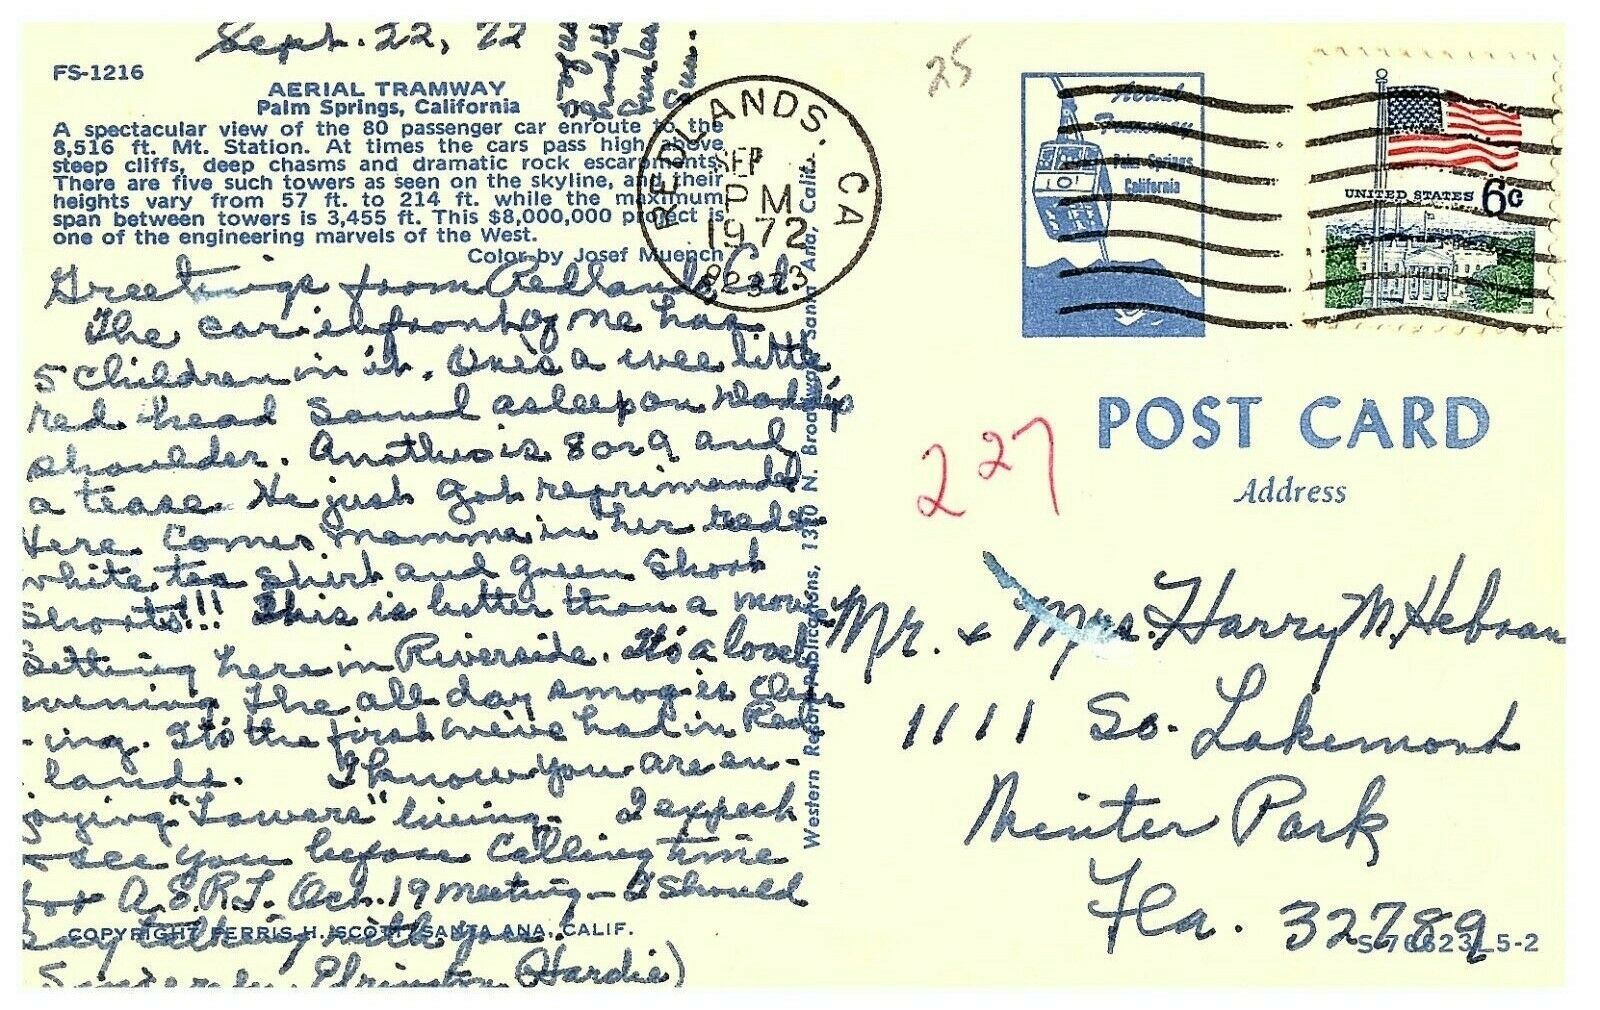 Sept. 22, 72
FS-1216
AERIAL TRAMWAY
Palm Springs, California
A spectacular view of the 80 passenger car enroute to the
8,516 ft. Mt. Station. At times the cars pass high above
steep cliffs, deep chasms and dramatic rock escarpments.
There are five such towers as seen on the skyline, and their
heights vary from 57 ft. to 214 ft. while the maximum
span between towers is 3,455 ft. This $8,000,000 project is
one of the engineering marvels of the West.
Color by Josef Muench
Greetings from Redlands Cal
The car in front of me has
5 children in it. One is a wee little
red head asleep on Daddy's
shoulder. Another is 8 or 9 and
a tease. He just got reprimanded
Here comes mamma in her red &
white tea shirt and green short
shorts!!! This is better than a movie
Sitting here in Riverside. It's a lovely
evening the all day smog is clear
-ing. It's the first we've had in Red
lands. I know you are en-
joying "Towers" living. I expect
to see you before "Calling time
for A.S.R.T. Oct. 19 meeting - I should
say talking with you.
Sincerely, (Hardie)
COPYRIGHT, FERRIS H. SCOTT, SANTA ANA, CALIF.
Western Resort Publications, 1310 N. Broadway, Santa Ana, Calif.
REDLANDS, CA
SEP
PM
1972
92373
25
Aerial
Tramway
Palm Springs
California
101
UNITED STATES 6¢
227
POST CARD
Address
Mr. & Mrs. Harry M. Hebran
1111 So. Lakemont
Winter Park
Fla. 32789
S-76623L5-2